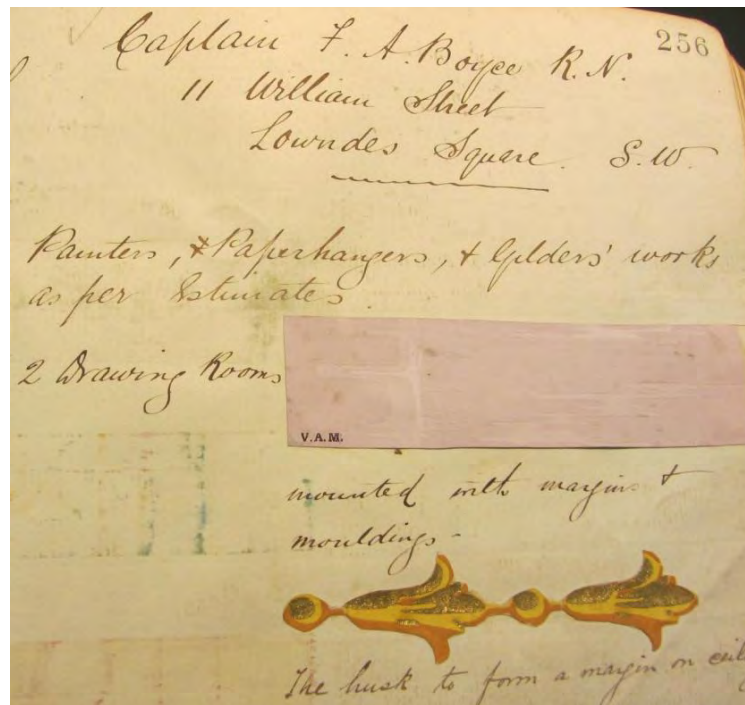 Captain F. A. Boyce R. N.
256
11 William Street
Lowndes Square. S.W.
Painters, & Paperhangers, & Gilders' works
as per Estimates.
2 Drawing Rooms
V.A.M.
mounted with margins &
mouldings -
The husk to form a margin on